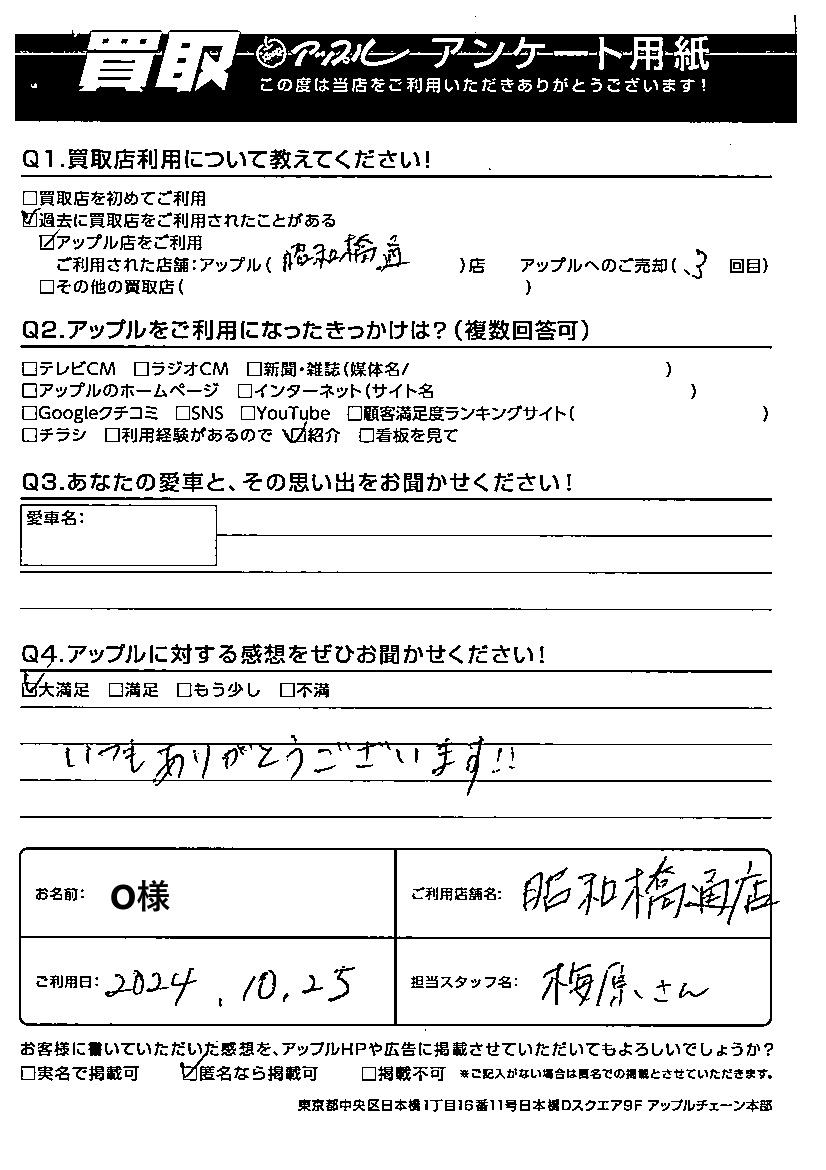 買取 アップル アンケート用紙
この度は当店をご利用いただきありがとうございます!
Q1.買取店利用について教えてください!
□買取店を初めてご利用
☑過去に買取店をご利用されたことがある
☑アップル店をご利用
ご利用された店舗:アップル( 昭和橋通 )店 アップルへのご売却( 3 回目)
□その他の買取店( )
Q2.アップルをご利用になったきっかけは?(複数回答可)
□テレビCM □ラジオCM □新聞・雑誌(媒体名/ )
□アップルのホームページ □インターネット(サイト名 )
□Googleクチコミ □SNS □YouTube □顧客満足度ランキングサイト( )
□チラシ □利用経験があるので ☑紹介 □看板を見て
Q3.あなたの愛車と、その思い出をお聞かせください!
愛車名:
Q4.アップルに対する感想をぜひお聞かせください!
☑大満足 □満足 □もう少し □不満
いつもありがとうございます!!
お名前: O様 ご利用店舗名: 昭和橋通店
ご利用日: 2024.10.25 担当スタッフ名: 梅原さん
お客様に書いていただいた感想を、アップルHPや広告に掲載させていただいてもよろしいでしょうか?
□実名で掲載可 ☑匿名なら掲載可 □掲載不可 ※ご記入がない場合は匿名での掲載とさせていただきます。
東京都中央区日本橋1丁目16番11号日本橋Dスクエア9F アップルチェーン本部